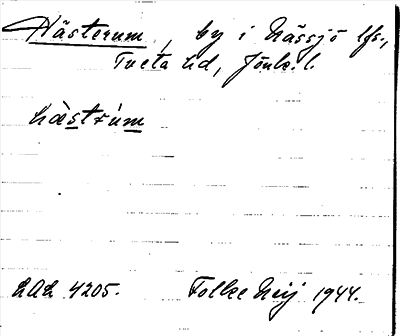 Hästerum, by i Nässjö lfs.,
Tveta hd, Jönk. l.
hæ̀strúm
LAL 4205. Folke Neij 1944.